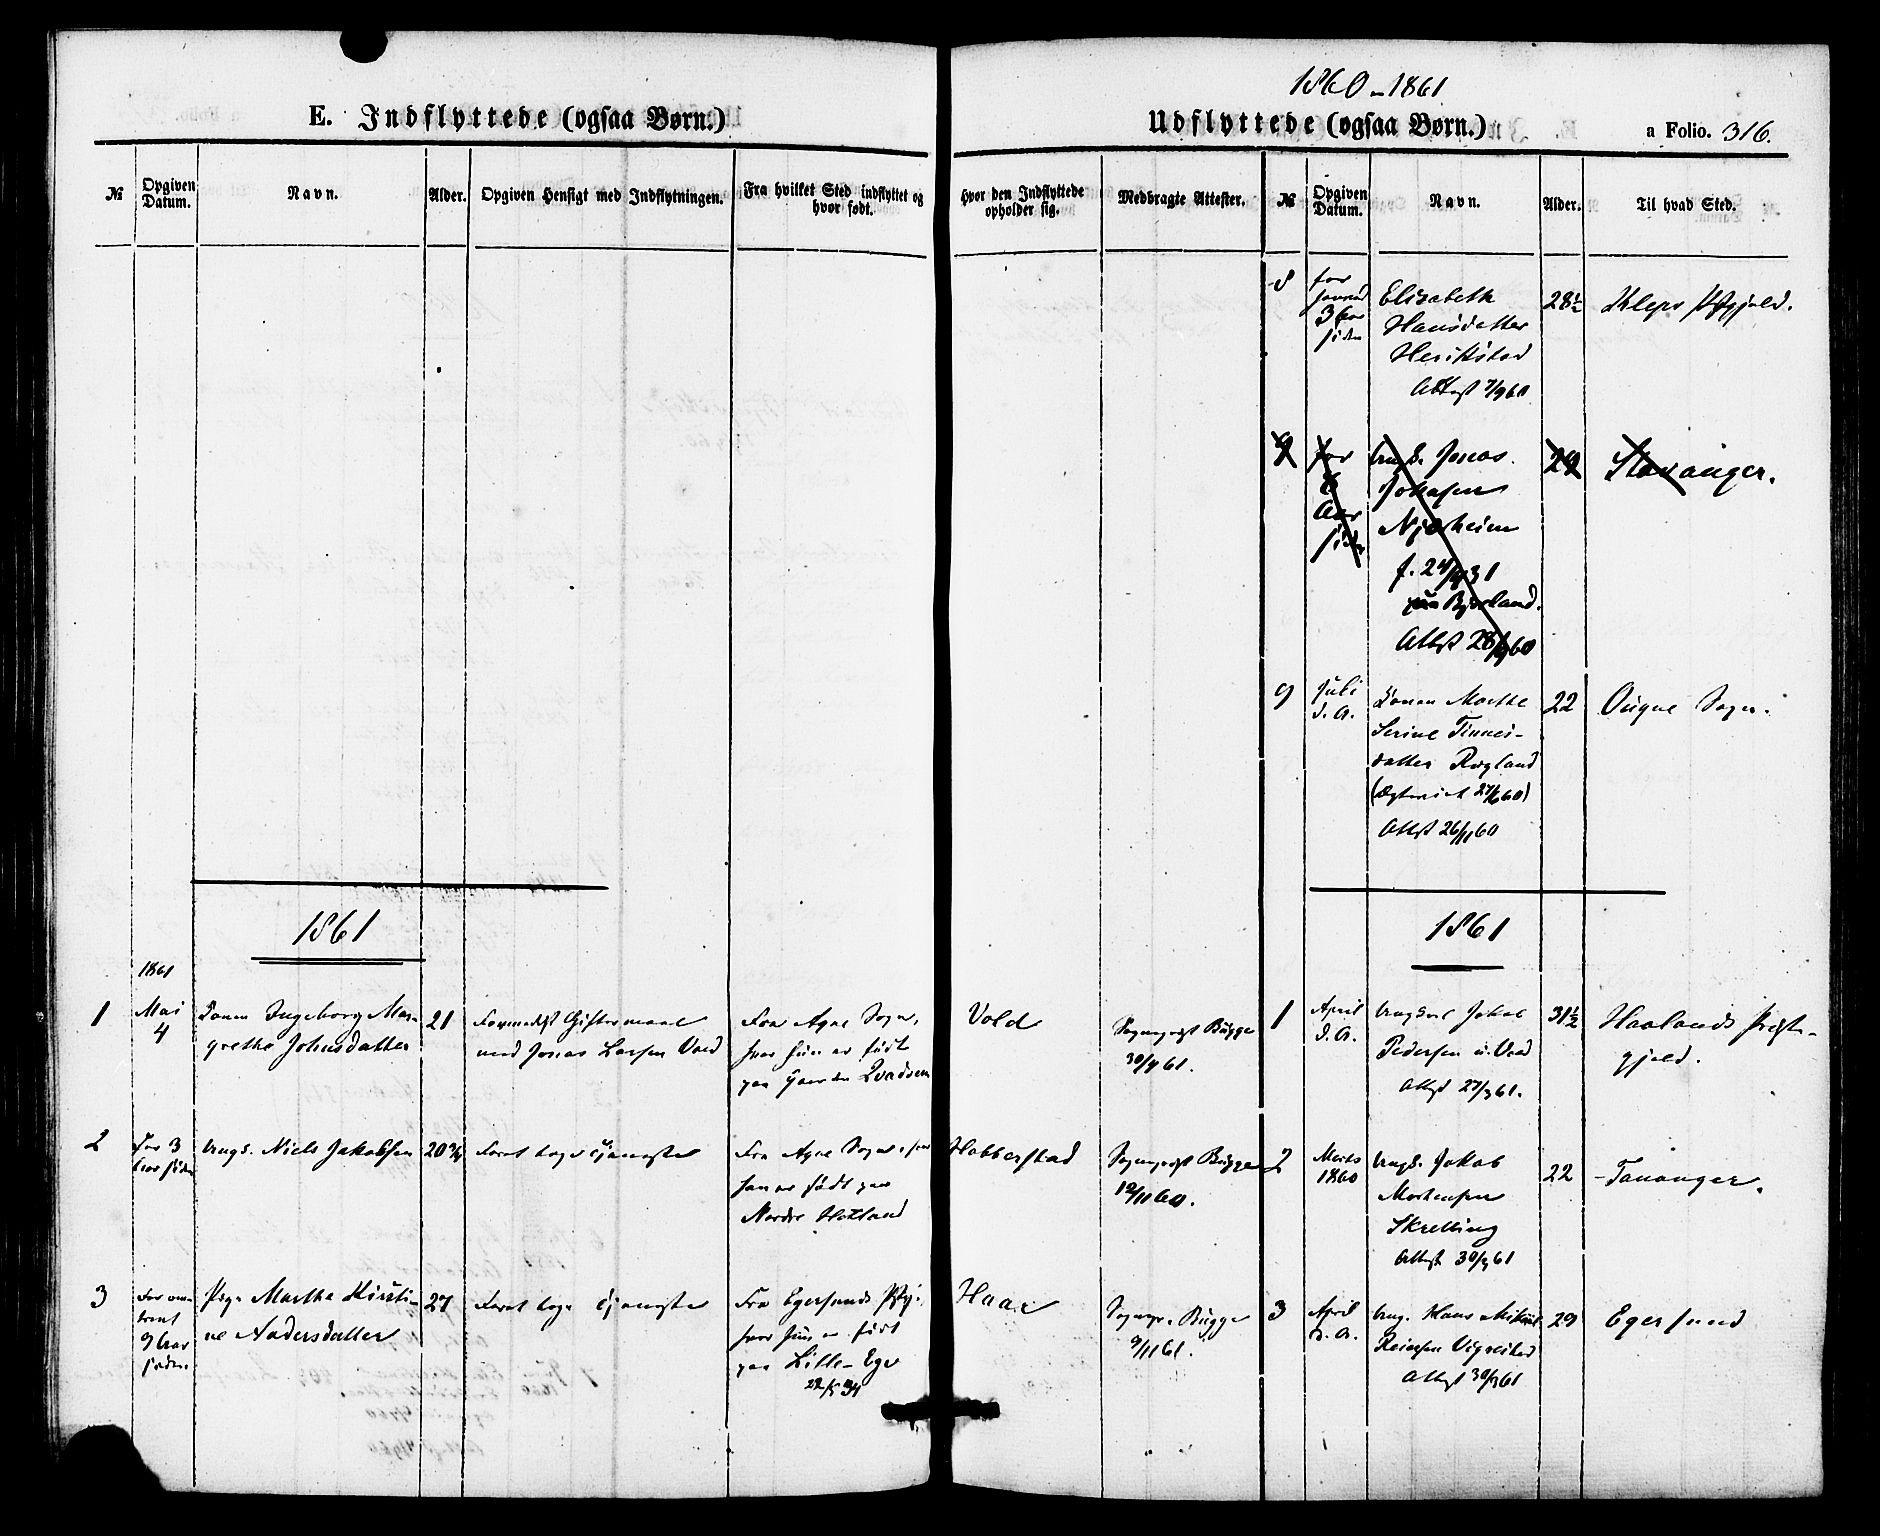 E. Indflyttede (ogsaa Børn.)
№
Opgiven
Datum.
Navn.
Alder.
Opgiven Hensigt med Indflytningen.
Fra hvilket Sted indflyttet og
hvor født.
1861
1861
1
Mai
4
Ingeborg Mar-
grethe Johnsdatter
21
Formedelst Giftermaal
med Jonas Larsen Vold
Fra Agne Sogn,
hvor hun er født
paa Gaarden
2
For 3
Aar siden
Ungk. Niels Jakobsen
20¾
For at tage Tjeneste
Fra Agne Sogn, hvor
han er født paa
Nordre Hetland
3
For om-
trent
9 Aar
siden
Pige Marthe Kirsti-
ne Andersdatter
27
For at tage Tjeneste
Fra Egersunds Pstgj.
hvor hun er født
paa Lille-Ege
22/5 34
1860-1861
Udflyttede (ogsaa Børn.)
a Folio. 316.
Hvor den Indflyttede
opholder sig.
Medbragte Attester.
№
Opgiven
Datum.
Navn.
Alder.
Til hvad Sted.
8
for
3 Aar
siden
Elisabeth
Hansdatter
Herikstad
Attest 7/9 60
28½
Kleps Pstgjeld.
9
for
6
Aar
siden
Ungk. Jonas
Njærheim
f. 31
paa Bjorland.
Attest 28/9 60
29
Stavanger.
9
Juli
d. A.
Konen Marthe
Serine Tønnes-
datter Røgland
Attest 26/11 60
22
Ougne Sogn.
1861
Vold
Sognepræst Bugge
30/4 61.
1
April
d. A.
Ungkarl Jakob
Pedersen
Attest 27/3 61.
31½
Haalands Præste-
gjeld.
Hobberstad
Sognepræst Bugge
12/11 60.
2
Marts
1860
Ungk. Jakob
Mortensen
Skretting
Attest 30/3 61
22
Tananger.
Haar
Sognepr. Bugge
9/11 61.
3
April
d. A.
Ung. Hans Mikal
Reiersen Vigrestad
Attest 30/3 61
29
Egersund